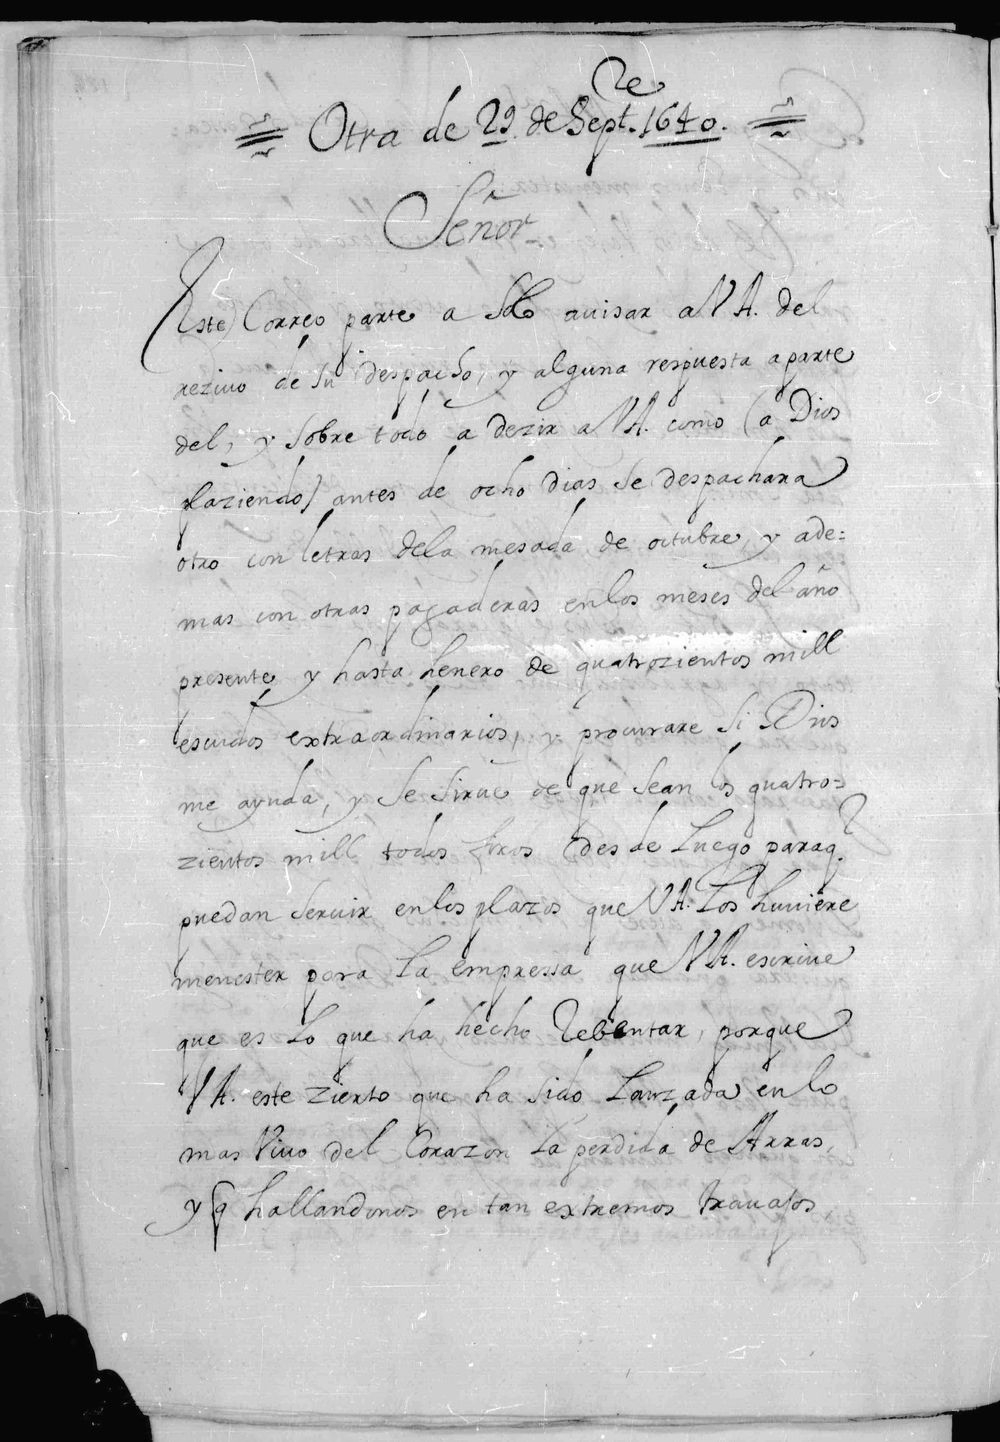 Otra de 29. de Sept.re 1640.
Señor
Este Correo parte a solo auisar a V A. del
reziuo de su despacho, y alguna respuesta aparte
del, y sobre todo a dezir a V A. como (a Dios
plaziendo) antes de ocho dias se despachara
otro con letras dela mesada de octubre, y ade=
mas con otras pagaderas enlos meses del año
presente y hasta henero de quatrozientos mill
escudos extraordinarios, y procurare si Dios
me ayuda, y se sirue de que sean los quatro=
zientos mill todos desde Luego paraq.
puedan seruir enlos plazos que V A. Los huuiere
menester para La empressa que V A. escriue
que es Lo que ha hecho Rebentar, porque
V A. este zierto que ha sido Lanzada en lo
mas Viuo del Corazon La perdida de Arras,
y q hallandonos en tan extremos trauajos